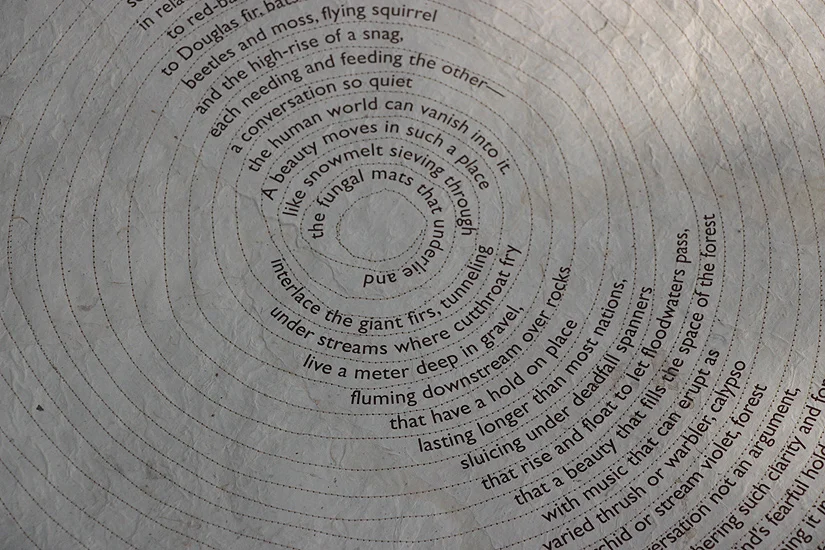 in
to
to Douglas fir,
beetles and moss, flying squirrel
and the high-rise of a snag,
each needing and feeding the other—
a conversation so quiet
the human world can vanish into it.
A beauty moves in such a place
like snowmelt sieving through
the fungal mats that underlie and
interlace the giant firs, tunneling
under streams where cutthroat fry
live a meter deep in gravel,
fluming downstream over rocks
that have a hold on place
lasting longer than most nations,
sluicing under deadfall spanners
that rise and float to let floodwaters pass,
that a beauty that fills the space of the forest
with music that can erupt as
varied thrush or warbler, calypso
or stream violet, forest
not an argument,
such clarity and
fearful hold
it